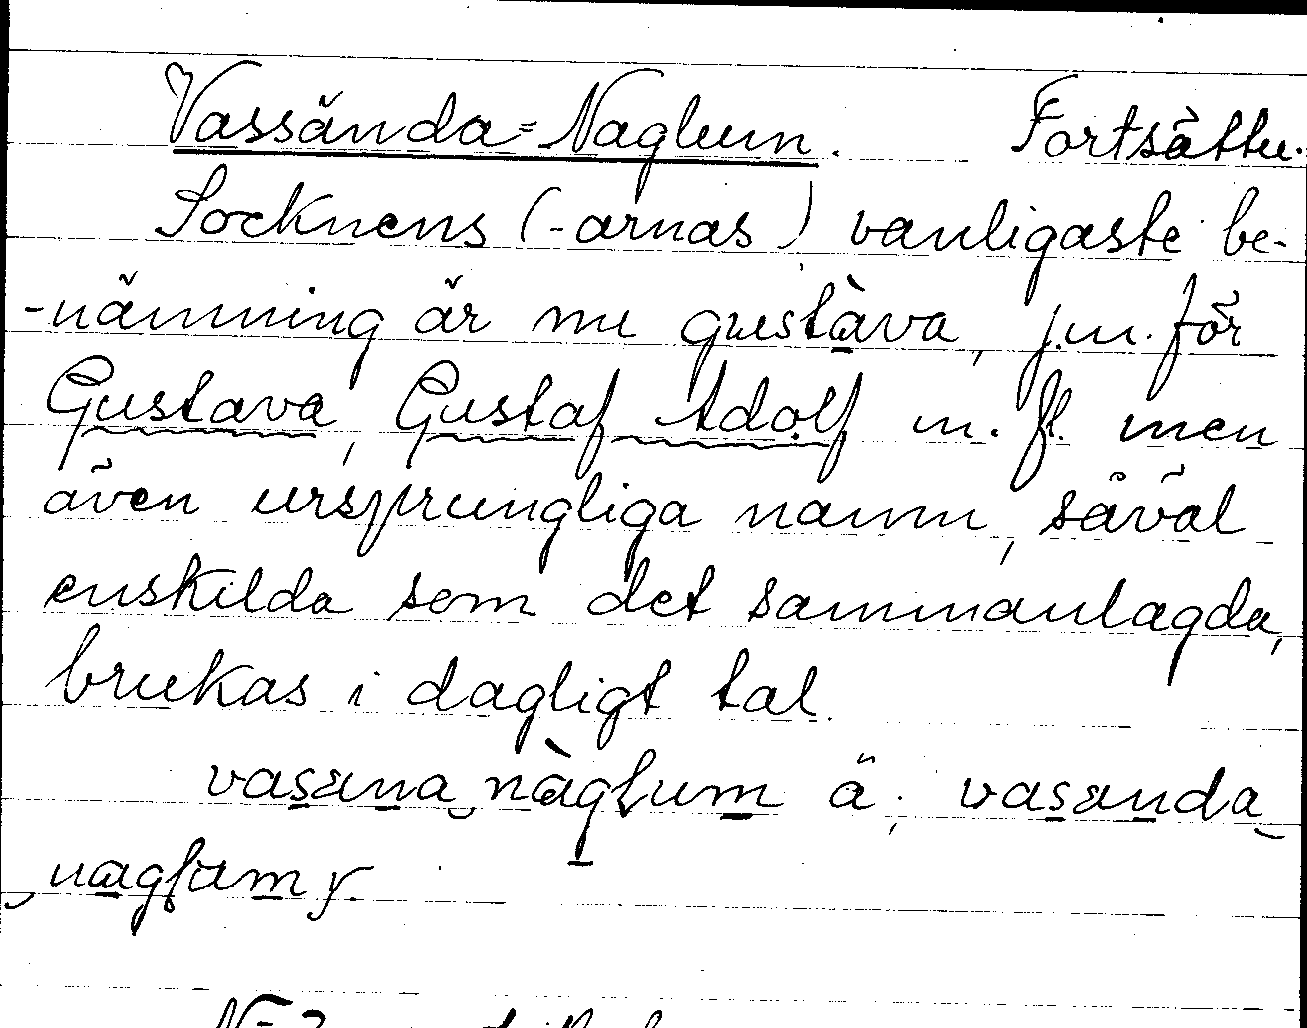 Vassända=Naglum. Fortsättn.
Socknens (-arnas) vanligaste be-
-nämning är nu gustàva, j.m. för
Gustava, Gustaf Adolf m. fl. men
även ursprungliga namn, såväl
enskilda som det sammanlagda,
brukas i dagligt tal.
vasæna nàglum ä; vasænda
naglum y.